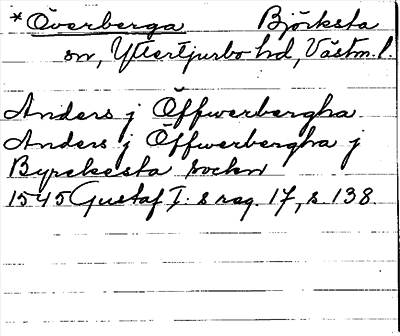 *Överberga Björksta
sn, Yttertjurbo hd, Västm. l.
Anders j Öffwerbergha
Anders j Öffwerbergha j
Byrekesta sockn
1545 Gustaf I:s reg. 17, s. 138